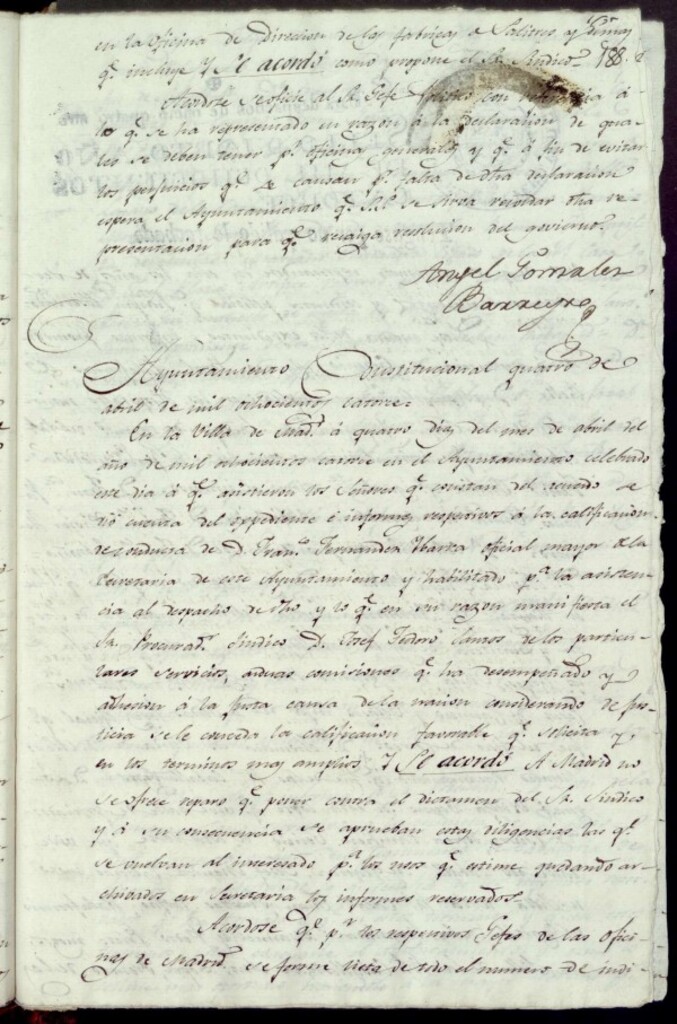 en la oficina de Direccion de las fabricas de Salitres y
qᵉ incluye Y Se acordó como propone el Sr. Sindico. 188.
Acordose se oficie al Sr. Gefe Politico con referencia á
lo qᵉ se ha representado en razon á la declaracion de qua-
les se deben tener pʳ oficinas generales y qᵉ á fin de evitar
los perjuicios qᵉ se causan pʳ falta de dha declaracion
espera el Ayuntamiento qᵉ S.S. se sirva recordar dha re-
presentacion para qᵉ recaiga resolucion del govierno.
Angel Gonzalez
Barreyro
Ayuntamiento Constitucional quatro de
abril de mil ochocientos catorce.
En la Villa de Madᵈ á quatro dias del mes de abril del
año de mil ochocientos catorce en el Ayuntamiento celebrado
este dia á qᵉ asistieron los Señores qᵉ constan del acuerdo se
dió cuenta del expediente é informes respectivos á la calificacion
de conducta de D. Franᶜᵒ Fernandez Ybarra oficial mayor de la
Secretaria de este Ayuntamiento y habilitado pᵃ la asisten-
cia al despacho de dho y lo qᵉ en su razon manifiesta el
Sr. Procuradʳ Sindico D. Josef Isidoro de los particu-
lares servicios, arduas comisiones qᵉ ha desempeñado y
adhesion á la justa causa de la nacion considerando de jus-
ticia se le conceda la calificacion favorable qᵉ solicita y
en los terminos mas amplios Y Se acordó A Madrid no
se ofrece reparo qᵉ poner contra el dictamen del Sr. Sindico
y á su consecuencia se aprueban estas diligencias las qᵉ
se vuelvan al interesado pᵃ los usos qᵉ estime quedando ar-
chivados en Secretaria los informes reservados.
Acordose qᵉ pʳ los respectivos Gefes de las Ofici-
nas de Madrid se forme lista de todo el numero de indi-